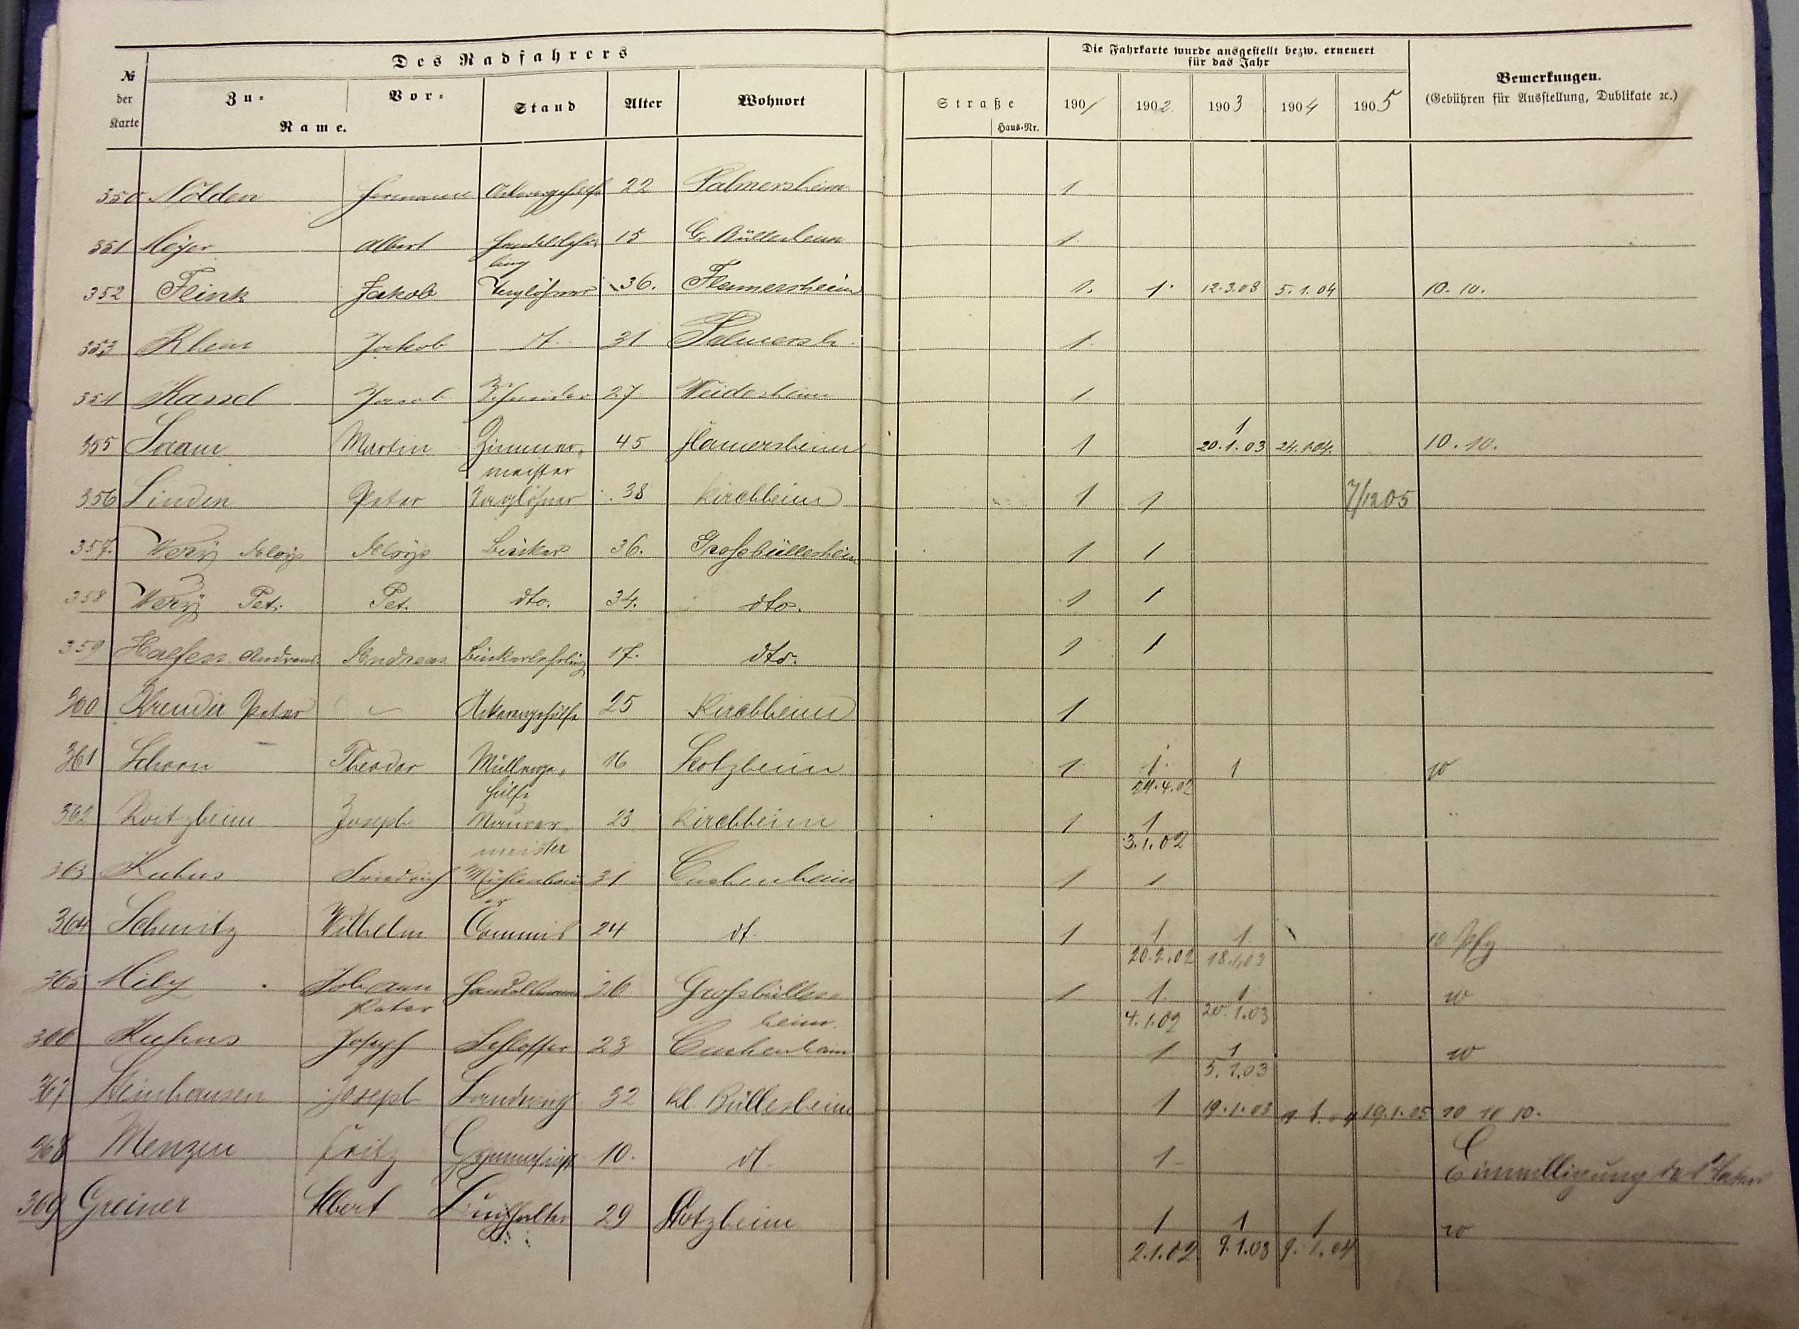 Des Radfahrers
Die Fahrkarte wurde ausgestellt bezw. erneuert
für das Jahr
Bemerkungen.
(Gebühren für Ausstellung, Dublikate ꝛc.)
№ der Karte
Zu-
Vor-
Name.
Stand
Alter
Wohnort
Straße
Haus-Nr.
1901 1902. 1903 1904 1905
350 Nölden Hermann Ackergehülfe 22 Palmersheim 1
351 Albert 15 Gr. Büllesheim 1
352 Flink Jakob Taglöhner 36. Flamersheim 1. 1. 12.3.03 5.1.04 10. 10.
353 Jakob dt. 31 Palmersh. 1
354 Kassel Jacob Schneider 27 Weidesheim 1
355 Martin Zimmer- 45 Flamersheim 1 1 20.1.03 24.1.04. 10. 10.
meister
356 Linden Peter Taglöhner 38 Kirchheim 1 1 7/12 05
357. Aloys Aloys 36. Großbüllesheim 1 1
358 Pet. Pet. dto. 34. dto. 1 1
359 Andreas Andreas 17. dto. 1 1
360 Peter Ackergehülfe 25 Kirchheim 1
361 Schorn Theodor Müllerge- 16 Kotzheim 1 1 1 10
hülfe 24.4.02
362 Roitzheim Joseph Maurer- 23 Kirchheim 1 1
meister 3.1.02
363 Friedrich Mühlenbau 31 Cuchenheim 1 1
er
364 Schmitz Wilhelm Commis 24 dt. 1 1 1 10 Pfg
20.2.02 18.1.03
365 Johann 26 Großbülles- 1 1 1 10
Peter heim. 4.1.02 20.1.03
366 Joseph Schlosser 23 Cuchenheim 1 1 10
5.1.03
367 Steinhausen Joseph Landwirt 32 Kl. Büllesheim 1 19.1.03 19.1.05 10 10 10.
368 Menzen Fritz Gymnasiast 10. dt. 1 Einwilligung des Vaters
369 Greiner Albert 29 Kotzheim 1 1 1 10
2.1.02 9.1.03 9.1.04